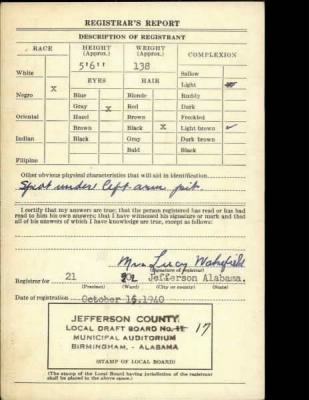 REGISTRAR'S REPORT
DESCRIPTION OF REGISTRANT
RACE HEIGHT (Approx.) WEIGHT (Approx.) COMPLEXION
5'6" 138
White Sallow
EYES HAIR Light
Negro X Blue Blonde Ruddy
Gray X Red Dark
Oriental Hazel Brown Freckled
Brown Black X Light brown ✓
Indian Black Gray Dark brown
Bald Black
Filipino
Other obvious physical characteristics that will aid in identification
Spot under left arm pit.
I certify that my answers are true; that the person registered has read or has had
read to him his own answers; that I have witnessed his signature or mark and that
all of his answers of which I have knowledge are true, except as follows:
Mrs Lucy Wakefield
(Signature of registrar)
Registrar for 21 Jefferson Alabama.
(Precinct) (Ward) (City or county) (State)
Date of registration October 16, 1940
JEFFERSON COUNTY
LOCAL DRAFT BOARD No. 11 17
MUNICIPAL AUDITORIUM
BIRMINGHAM, - ALABAMA
(STAMP OF LOCAL BOARD)
(The stamp of the Local Board having jurisdiction of the registrant
shall be placed in the above space.)